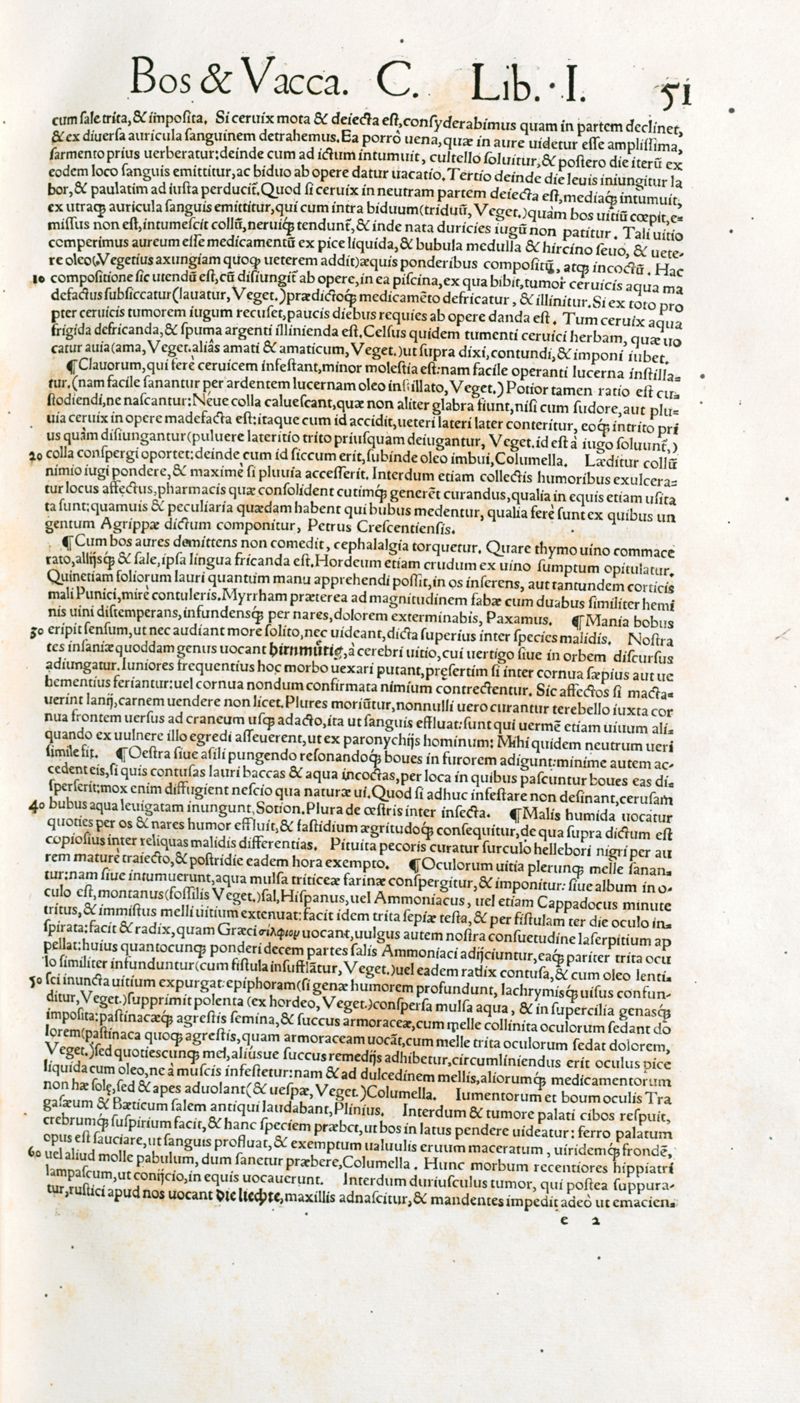 Bos & Vacca. C. Lib. I. 51
cum ſale trita, & impoſita. Si ceruix mota & deiecta eſt, conſyderabimus quam in partem declinet,
& ex diuerſa auricula ſanguinem detrahemus. Ea porrò uena, quæ in aure uidetur eſſe ampliſsima,
ſarmento prius uerberatur: deinde cum ad ictum intumuit, cultello ſoluitur, & poſtero die iterũ ex
eodem loco ſanguis emittitur, ac biduo ab opere datur uacatio. Tertio deinde die leuis iniungitur la
bor, & paulatim ad iuſta perducit̃. Quod ſi ceruix in neutram partem deiecta eſt, mediaq́; intumuit,
ex utraq; auricula ſanguis emittitur, qui cum intra biduum (triduũ, Veget.) quàm bos uitiũ cœpit, e-
miſſus non eſt, intumeſcit collũ, neruiq́; tendunt̃, & inde nata duricies iugũ non patitur. Tali uitio
comperimus aureum eſſe medicamentũ ex pice liquida, & bubula medulla & hircino ſeuo, & uete-
re oleo (Vegetius axungiam quoq; ueterem addit) æquis ponderibus compoſitũ, atq; incoctũ. Hac
10 compoſitione ſic utendũ eſt, cũ diſiungit̃ ab opere, in ea piſcina, ex qua bibit, tumor ceruicis aqua ma
defactus ſubſiccatur (lauatur, Veget.) prædictoq́; medicamẽto defricatur, & illinitur. Si ex toto pro
pter ceruicis tumorem iugum recuſet, paucis diebus requies ab opere danda eſt. Tum ceruix aqua
frigida defricanda, & ſpuma argenti illinienda eſt. Celſus quidem tumenti ceruici herbam, quæ uo
catur auia (ama, Veget. aliâs amati & amaticum, Veget.) ut ſupra dixi, contundi, & imponi iubet.
¶ Clauorum, qui ferè ceruicem infeſtant, minor moleſtia eſt: nam facile operanti lucerna inſtilla-
tur. (nam facile ſanantur per ardentem lucernam oleo inſtillato, Veget.) Potior tamen ratio eſt cu-
ſtodiendi, ne naſcantur: Neue colla calueſcant, quæ non aliter glabra fiunt, niſi cum ſudore, aut plu-
uia ceruix in opere madefacta eſt: itaque cum id accidit, ueteri lateri later conteritur, eoq́; intrito pri
us quàm diſiungantur (puluere lateritio trito priuſquam deiugantur, Veget. id eſt à iugo ſoluunt̃,)
20 colla conſpergi oportet: deinde cum id ſiccum erit, ſubinde oleo imbui, Columella. Læditur collũ
nimio iugi pondere, & maximè ſi pluuia acceſſerit. Interdum etiam collectis humoribus exulcera-
tur locus affectus, pharmacis quæ conſolident cutimq́; generẽt curandus, qualia in equis etiam uſita
ta ſunt: quamuis & peculiaria quædam habent qui bubus medentur, qualia ferè ſunt ex quibus un
gentum Agrippæ dictum componitur, Petrus Creſcentienſis.
¶ Cum bos aures demittens non comedit, cephalalgia torquetur. Quare thymo uino commace
rato, allijsq́; & ſale, ipſa lingua fricanda eſt. Hordeum etiam crudum ex uino ſumptum opitulatur.
Quinetiam foliorum lauri quantum manu apprehendi poſsit, in os inſerens, aut tantundem corticis
mali Punici, mirè contuleris. Myrrham præterea ad magnitudinem fabæ cum duabus ſimiliter hemi
nis uini diſtemperans, infundensq́; per nares, dolorem exterminabis, Paxamus. ¶ Mania bobus
30 eripit ſenſum, ut nec audiant more ſolito, nec uideant, dicta ſuperius inter ſpecies malidis. Noſtra
tes inſaniæ quoddam genus uocant hirnmütig, à cerebri uitio, cui uertigo ſiue in orbem diſcurſus
adiungatur. Iuniores frequentius hoc morbo uexari putant, præſertim ſi inter cornua ſæpius aut ue
hementius feriantur: uel cornua nondum confirmata nimium contrectentur. Sic affectos ſi macta-
uerint lanij, carnem uendere non licet. Plures moriũtur, nonnulli uero curantur terebello iuxta cor
nua frontem uerſus ad craneum uſq; adacto, ita ut ſanguis effluat: ſunt qui uermẽ etiam uiuum ali-
quando ex uulnere illo egredi aſſeuerent, ut ex paronychijs hominum: Mihi quidem neutrum ueri
ſimile fit. ¶ Oeſtra ſiue aſili pungendo reſonandoq́; boues in furorem adigunt: minime autem ac-
cedent eis, ſi quis contuſas lauri baccas & aqua incoctas, per loca in quibus paſcuntur boues eas di-
ſperſerit: mox enim diffugient neſcio qua naturæ ui. Quod ſi adhuc infeſtare non deſinant, ceruſam
40 bubus aqua leuigatam inungunt, Sotion. Plura de œſtris inter inſecta. ¶ Malis humida uocatur
quoties per os & nares humor effluit, & faſtidium ægritudoq́; conſequitur, de qua ſupra dictum eſt
copioſius inter reliquas malidis differentias. Pituita pecoris curatur ſurculo hellebori nigri per au
rem maturè traiecto, & poſtridie eadem hora exempto. ¶ Oculorum uitia plerunq; melle ſanan-
tur: nam ſiue intumuerunt, aqua mulſa triticeæ farinæ conſpergitur, & imponitur: ſiue album in o-
culo eſt, montanus (foſſilis Veget.) ſal, Hiſpanus, uel Ammoniacus, uel etiam Cappadocus minute
tritus, & immiſtus melli uitium extenuat: facit idem trita ſepiæ teſta, & per fiſtulam ter die oculo in-
ſpirata: facit & radix, quam Græci σίλφιον uocant, uulgus autem noſtra conſuetudine laſerpitium ap
pellat: huius quantocunq; ponderi decem partes ſalis Ammoniaci adijciuntur, eaq́; pariter trita ocu
lo ſimiliter infunduntur (cum fiſtula inſufflãtur, Veget.) uel eadem radix contuſa, & cum oleo lenti-
50 ſci inuncta uitium expurgat: epiphoram (ſi genæ humorem profundunt, lachrymisq́; uiſus confun-
ditur, Veget.) ſupprimit polenta (ex hordeo, Veget.) conſperſa mulſa aqua, & in ſupercilia genasq́;
impoſita: paſtinacæq́; agreſtis ſemina, & ſuccus armoraceæ, cum melle collinita oculorum ſedant do
lorem (paſtinaca quoq; agreſtis, quam armoraceam uocãt, cum melle trita oculorum ſedat dolorem,
Veget.) ſed quotieſcunq; mel, aliúsue ſuccus remedijs adhibetur, circumliniendus erit oculus pice
liquida cum oleo, ne à muſcis infeſtetur: nam & ad dulcedinem mellis, aliorumq́; medicamentorum
non hæ ſolę, ſed & apes aduolant (& ueſpæ, Veget.) Columella. Iumentorum et boum oculis Tra
gaſæum & Bæticum ſalem antiqui laudabant, Plinius. Interdum & tumore palati cibos reſpuit,
crebrumq́; ſuſpirium facit, & hanc ſpeciem præbet, ut bos in latus pendere uideatur: ferro palatum
opus eſt ſauciare, ut ſanguis profluat, & exemptum ualuulis eruum maceratum, uiridemq́; frondẽ,
60 uel aliud molle pabulum, dum ſanetur præbere, Columella. Hunc morbum recentiores hippiatri
lampaſcum, ut conijcio, in equis uocauerunt. Interdum duriuſculus tumor, qui poſtea ſuppura-
tur, ruſtici apud nos uocant die liechte, maxillis adnaſcitur, & mandentes impedit adeò ut emacien-
e 2